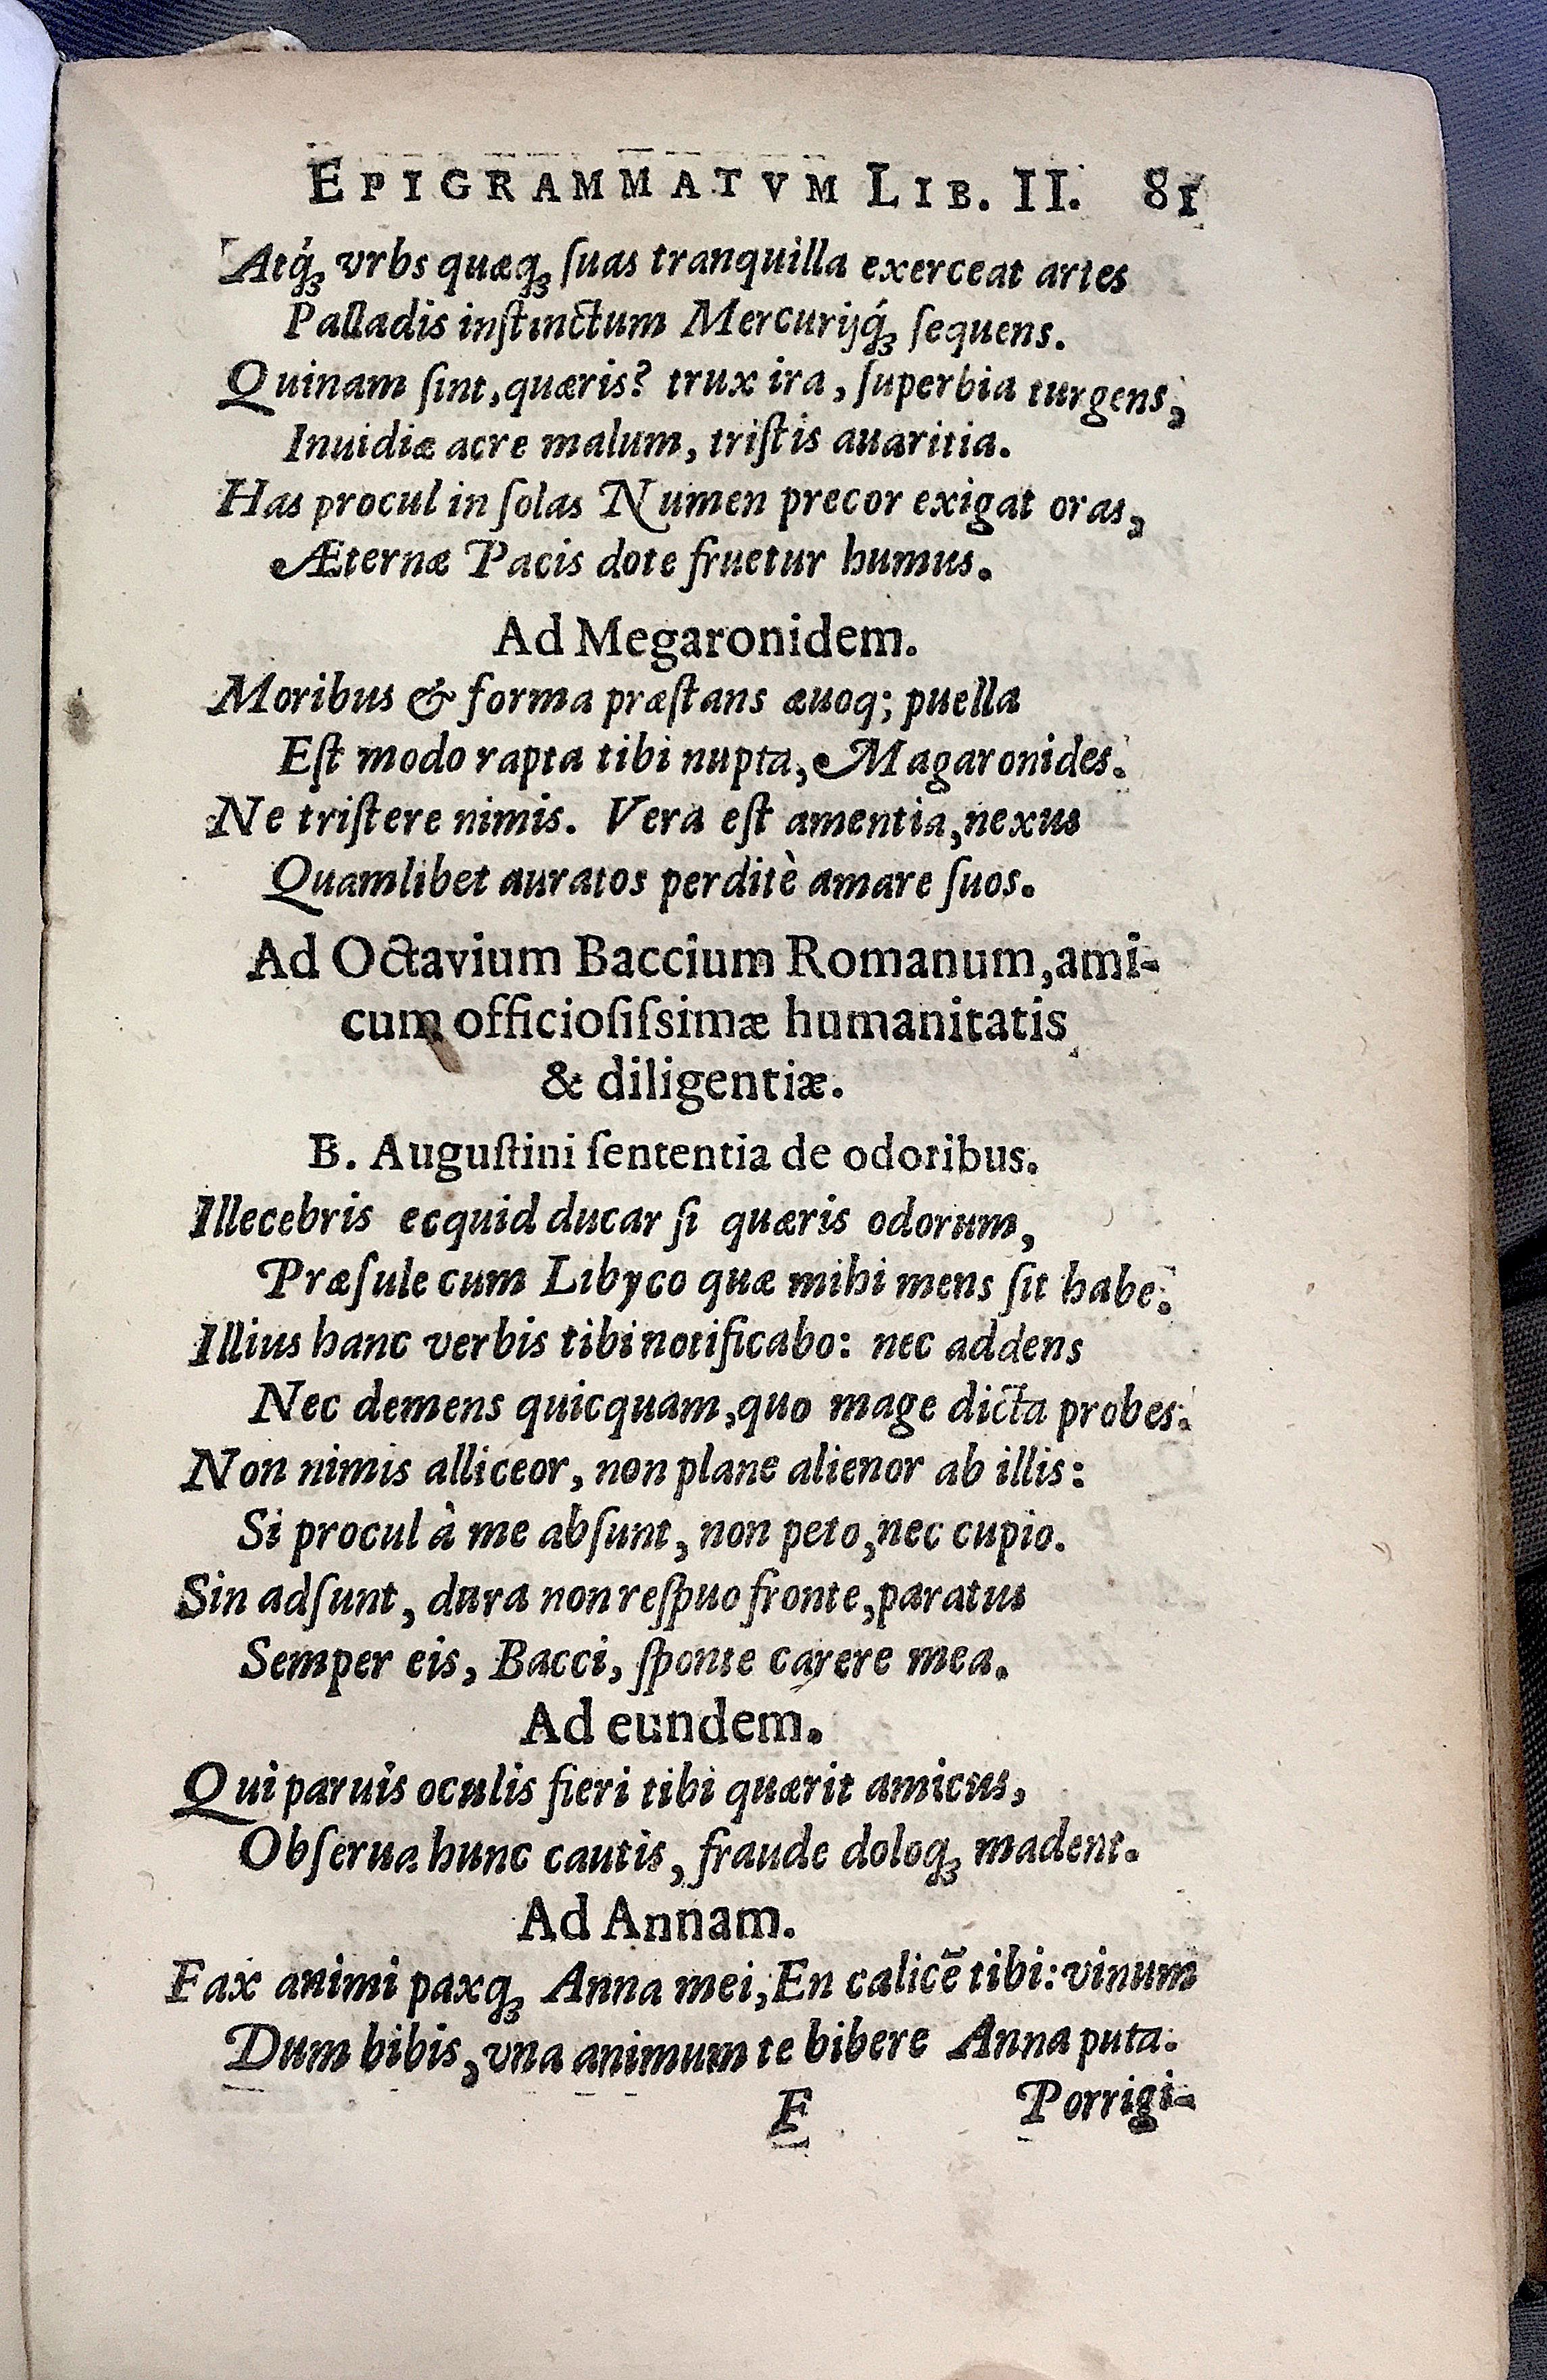 EPIGRAMMATVM LIB. II. 81
Atq́ꝫ vrbs quæqꝫ ſuas tranquilla exerceat artes
Palladis inſtinctum Mercurijq́ꝫ ſequens.
Quinam ſint, quæris? trux ira, ſuperbia turgens,
Inuidiæ acre malum, triſtis auaritia.
Has procul in ſolas Numen precor exigat oras,
Æternæ Pacis dote fruetur humus.
Ad Megaronidem.
Moribus & forma præſtans æuoq; puella
Eſt modo rapta tibi nupta, Magaronides.
Ne triſtere nimis. Vera eſt amentia, nexus
Quamlibet auratos perditè amare ſuos.
Ad Octavium Baccium Romanum, ami-
cum officioſiſsimæ humanitatis
& diligentiæ.
B. Auguſtini ſententia de odoribus.
Illecebris ecquid ducar ſi quæris odorum,
Præſule cum Libyco quæ mihi mens ſit habe.
Illius hanc verbis tibi notificabo: nec addens
Nec demens quicquam, quo mage dicta probes.
Non nimis alliceor, non plane alienor ab illis:
Si procul à me abſunt, non peto, nec cupio.
Sin adſunt, dura non reſpuo fronte, paratus
Semper eis, Bacci, ſponte carere mea.
Ad eundem.
Qui paruis oculis fieri tibi quærit amicus,
Obſerua hunc cautis, fraude doloqꝫ madent.
Ad Annam.
Fax animi paxqꝫ Anna mei, En calicē tibi: vinum
Dum bibis, vna animum te bibere Anna puta.
F Porrigi-